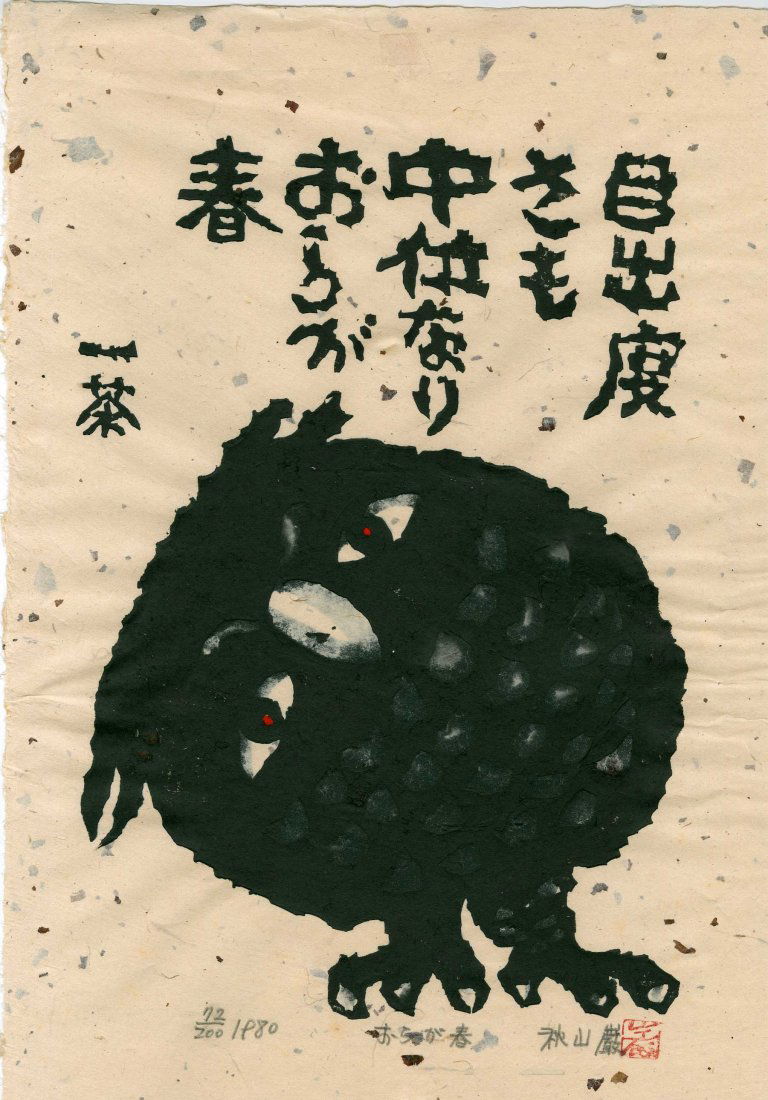 目出度
さも
中位なり
おらが
春
一茶
72/200 1980
おらが春
秋山巌